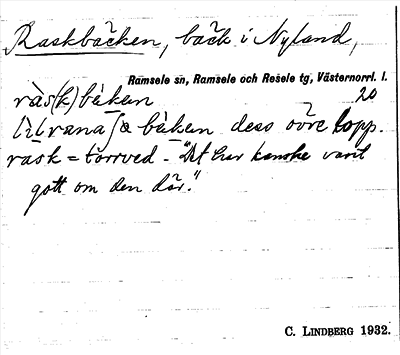 Raskbäcken, bäck i Nyland,
Ramsele sn, Ramsele och Resele tg, Västernorrl. l.
20
ràs(k)bä̀ken
bä̀ken dess övre lopp.
räsk = torrved - "Det har kanske varit
gott om den där."
C. LINDBERG 1932.